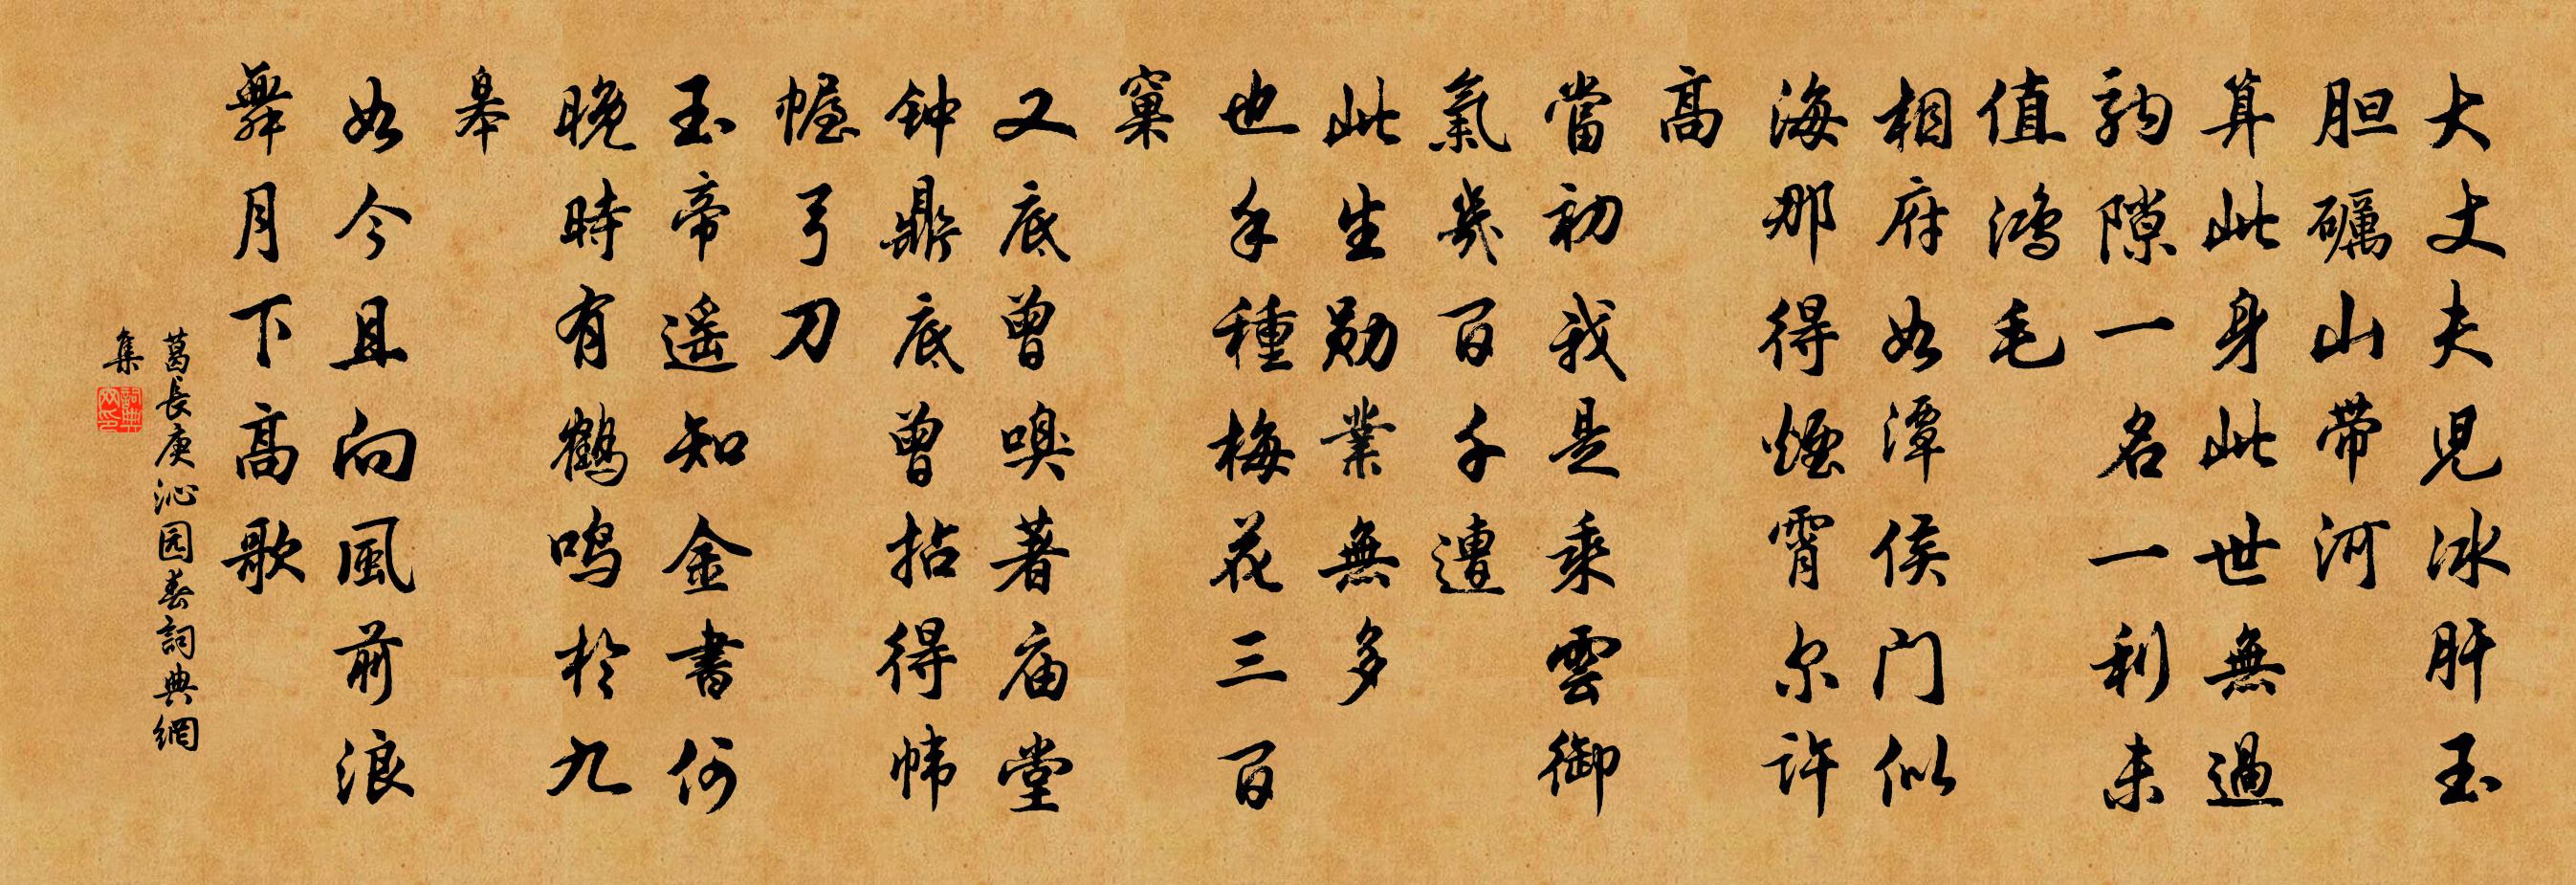 大丈夫兒冰肝玉
胆礪山带河
算此身此世無過
駒隙一名一利未
值鴻毛
相府如潭侯门似
海那得煙霄尔許
高
當初我是乘雲御
氣幾百千遭
此生勋業無多
也手種梅花三百
窠
又底曾嗅著庙堂
钟鼎底曾拈得帏
幄弓刀
玉帝遥知金書何
晚時有鶴鸣於九
皋
如今且向風前浪
舞月下高歌
葛長庚沁园春詞典網
集
詞典网印